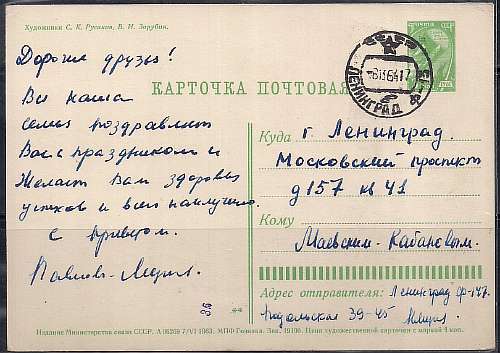 Художники С. К. Русаков, В. И. Зарубин.
Дорогие друзья!
Вся наша
семья поздравляет
Вас с праздником и
желает Вам здоровья
успехов и всего наилучшего.
С приветом.
КАРТОЧКА ПОЧТОВАЯ
ПОЧТА СССР
ЛЕНИНГРАД
Куда г. Ленинград.
Московский проспект
д 157 кв 41
Кому
Маевским-Кабановым.
Адрес отправителя: Ленинград Ф-147
Подольская 39-45
36
**
Издание Министерства связи СССР. А 06269 7/VI 1963. МПФ Гознака. Зак. 19106. Цена художественной карточки с маркой 4 коп.